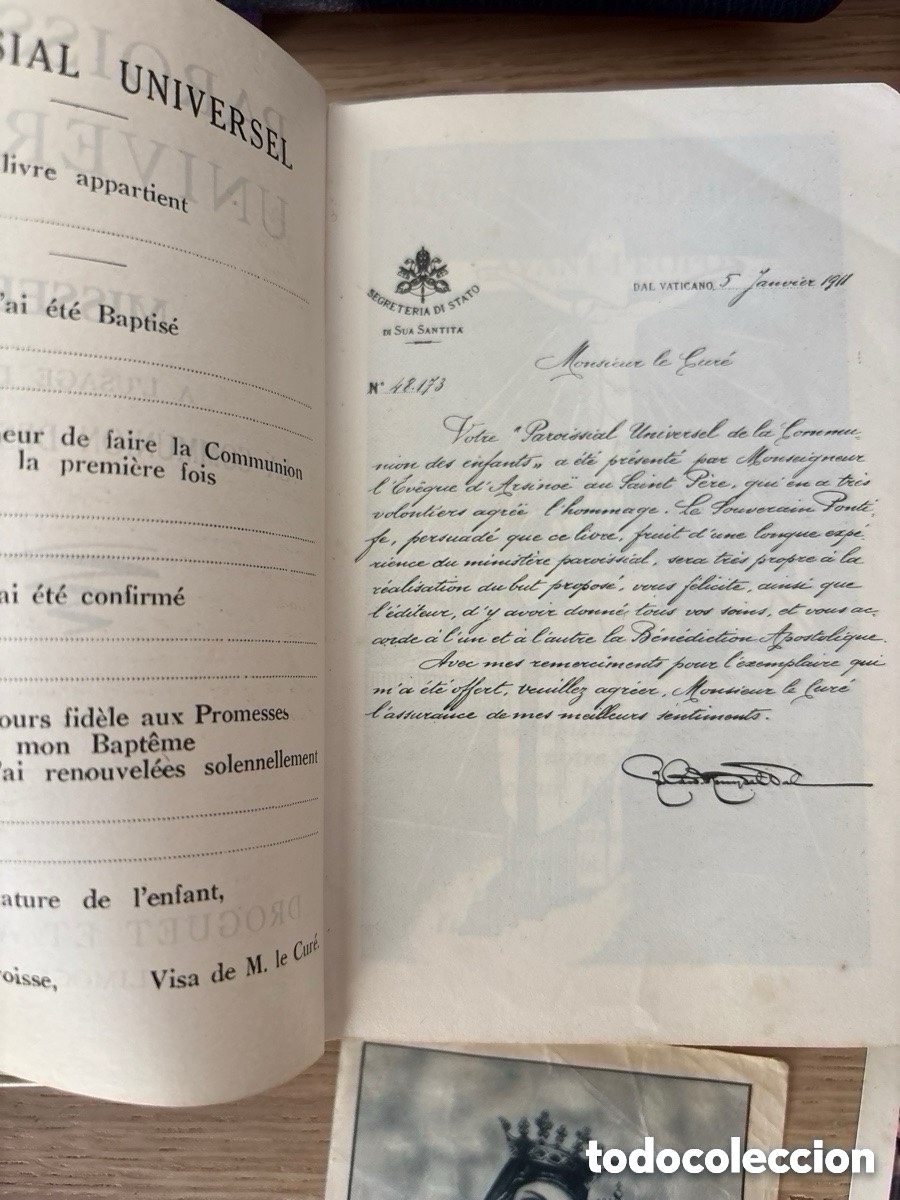 SIAL UNIVERSEL
livre appartient
'ai été Baptisé
eur de faire la Communion
la première fois
ai été confirmé
ours fidèle aux Promesses
mon Baptême
'ai renouvelées solennellement
ature de l'enfant,
oisse, Visa de M. le Curé.
SEGRETERIA DI STATO
DI SUA SANTITA
DAL VATICANO, 5 Janvier 1911
Monsieur le Curé
N° 48.173
Votre "Paroissial Universel de la Commu-
nion des enfants" a été présenté par Monseigneur
l'Evêque d'Arsinoë au Saint Père, qui en a très
volontiers agréé l'hommage. Le Souverain Ponti-
fe, persuadé que ce livre, fruit d'une longue expé-
rience du ministère paroissial, sera très propre à la
réalisation du but proposé, vous félicite, ainsi que
l'éditeur, d'y avoir donné tous vos soins, et vous ac-
corde à l'un et à l'autre la Bénédiction Apostolique.
Avec mes remerciments pour l'exemplaire qui
m'a été offert, veuillez agréer, Monsieur le Curé
l'assurance de mes meilleurs sentiments.
todocoleccion